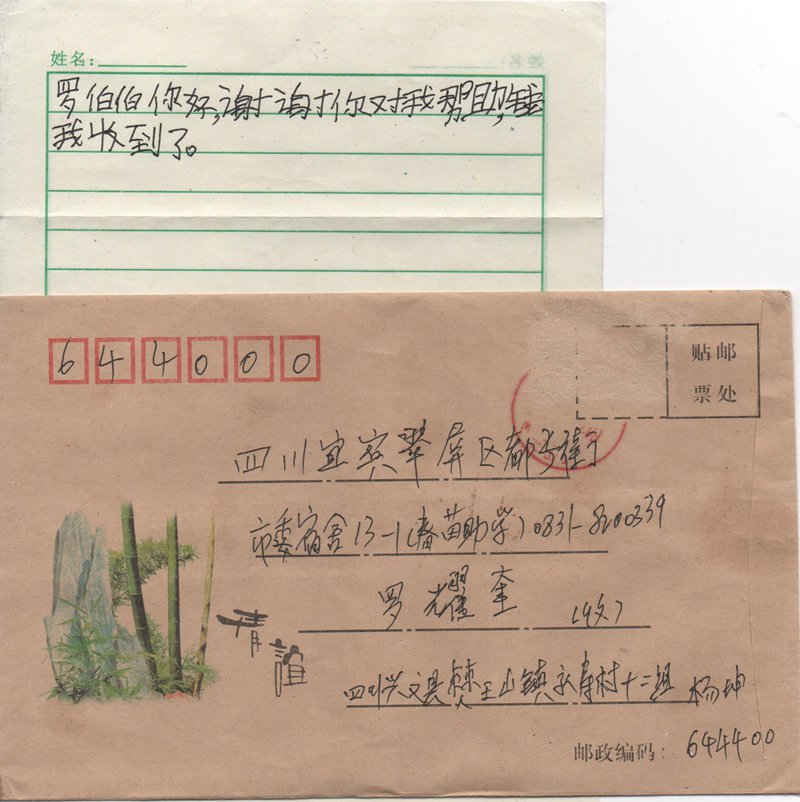 姓名:
罗伯伯你好,谢谢你对我帮助,钱
我收到了。
644000
贴邮
票处
四川宜宾翠屏区都长街
市委宿舍13-1(春苗助学)0831-8200339
罗耀奎 (收)
情谊
四川兴文县僰王山镇永寿村十二组 杨坤
邮政编码: 644400